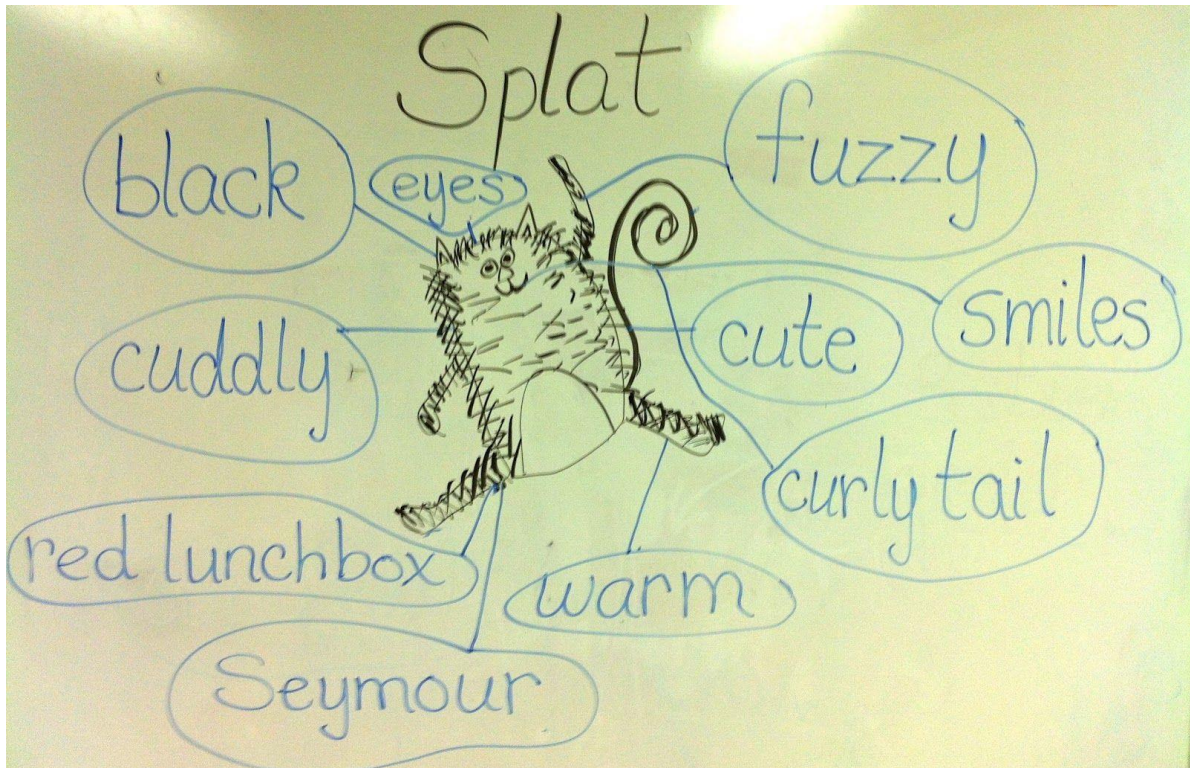 Splat
black
eyes
fuzzy
smiles
cuddly
cute
curly tail
red lunchbox
warm
Seymour